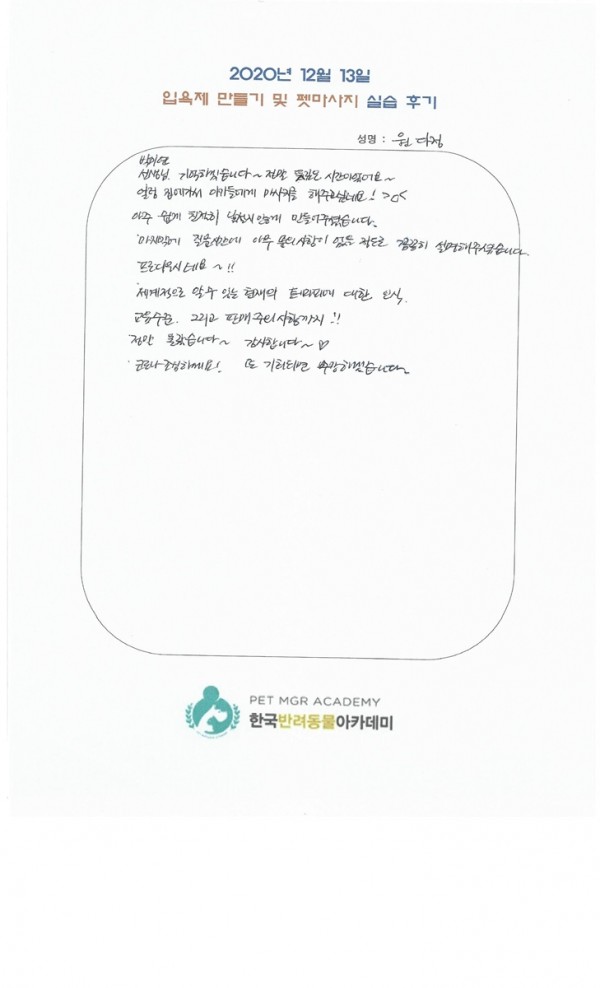 2020년 12월 13일
입욕제 만들기 및 펫마사지 실습 후기
성명 : 원 다정
박미연
선생님. 기억하겠습니다~ 정말 뜻깊은 시간이었어요~
얼렁 집에가서 아가들에게 마사지를 해주고싶네요! >□<
아주 쉽게 친절히 만들어주셨습니다.
마지막에 질문시간에 아무 문의사항이 없는 정도로 꼼꼼히 설명해주셨습니다.
프로다우시네요~!!
세계적으로 알 수 있는 현재의 테라피에 대한 인식.
교육수준. 그리고 판매주의사항까지!!
정말 놀랐습니다~ 감사합니다~ ♡
코로나조심하세요! 또 기회되면 하겠습니다.
PET MGR ACADEMY
한국반려동물아카데미